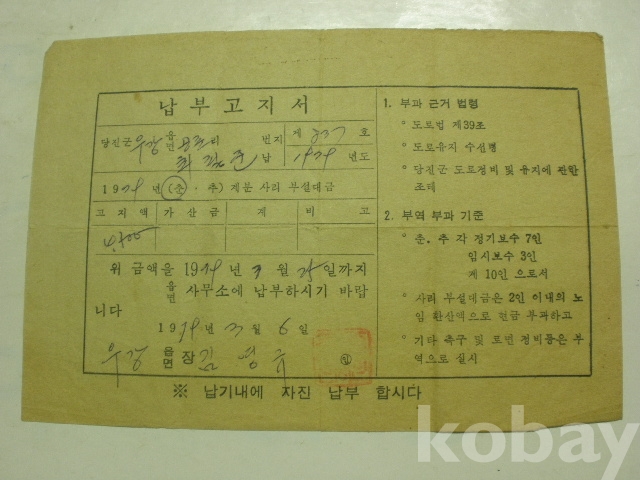 납부고지서
당진군 우강 읍면 리 번지 납
제 337 호
1979 년도
1979 년 (춘 · 추) 계분 사리 부설대금
고지액 가산금 계 비고
4,500
위 금액을 1979 년 3 월 25 일까지
읍면 사무소에 납부하시기 바랍
니다
1979 년 3 월 6 일
우강 읍면 장 김 영 규 인
※ 납기내에 자진 납부 합시다
1. 부과 근거 법령
° 도로법 제39조
° 도로유지 수선령
° 당진군 도로정비 및 유지에 관한
조례
2. 부역 부과 기준
° 춘. 추 각 정기보수 7인
임시보수 3인
계 10인 으로서
° 사리 부설대금은 2인 이내의 노
임 환산액으로 현금 부과하고
° 기타 측구 및 노면 정비등은 부
역으로 실시
kobay